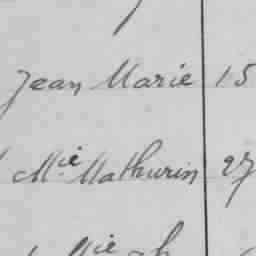 Jean Marie 15
Mie Mathurin 27